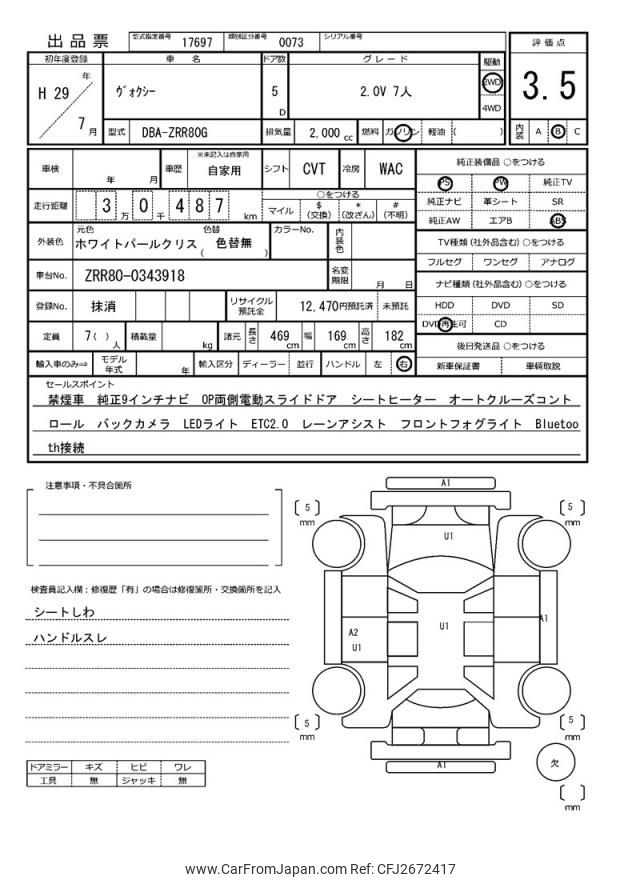 出品票
型式指定番号 17697 類別区分番号 0073 シリアル番号
評価点
3.5
内装 A B C
初年度登録 車名 ドア数 グレード 駆動
H 29 年 7 月
ヴォクシー
5 D
2.0V 7人
2WD
4WD
型式 DBA-ZRR80G 排気量 2,000 cc 燃料 ガソリン 軽油 ( )
車検 年 月 車歴 ※未記入は自家用 自家用 シフト CVT 冷房 WAC
走行距離 3 万 0 千 4 8 7 km
○をつける
マイル $ (交換) * (改ざん) # (不明)
外装色 元色 ホワイトパールクリス 色替 ( 色替無 ) カラーNo. 内装色
車台No. ZRR80-0343918 名変期限 月 日
登録No. 抹消 リサイクル預託金 12,470円預託済 未預託
定員 7( ) 人 積載量 kg 諸元 長さ 469 cm 幅 169 cm 高さ 182 cm
輸入車のみ⇒ モデル年式 年 輸入区分 ディーラー 並行 ハンドル 左 右
純正装備品 ○をつける
PS PW 純正TV
純正ナビ 革シート SR
純正AW エアB ABS
TV種類 (社外品含む) ○をつける
フルセグ ワンセグ アナログ
ナビ種類 (社外品含む) ○をつける
HDD DVD SD
DVD再生可 CD
後日発送品 ○をつける
新車保証書 車輌取説
セールスポイント
禁煙車 純正9インチナビ OP両側電動スライドドア シートヒーター オートクルーズコント
ロール バックカメラ LEDライト ETC2.0 レーンアシスト フロントフォグライト Bluetoo
th接続
注意事項・不具合箇所
検査員記入欄：修復歴「有」の場合は修復箇所・交換箇所を記入
シートしわ
ハンドルスレ
ドアミラー キズ ヒビ ワレ
工具 無 ジャッキ 無
A1
5 mm
5 mm
U1
A2
U1
U1
A1
5 mm
5 mm
A1
欠
mm
www.CarFromJapan.com Ref: CFJ2672417